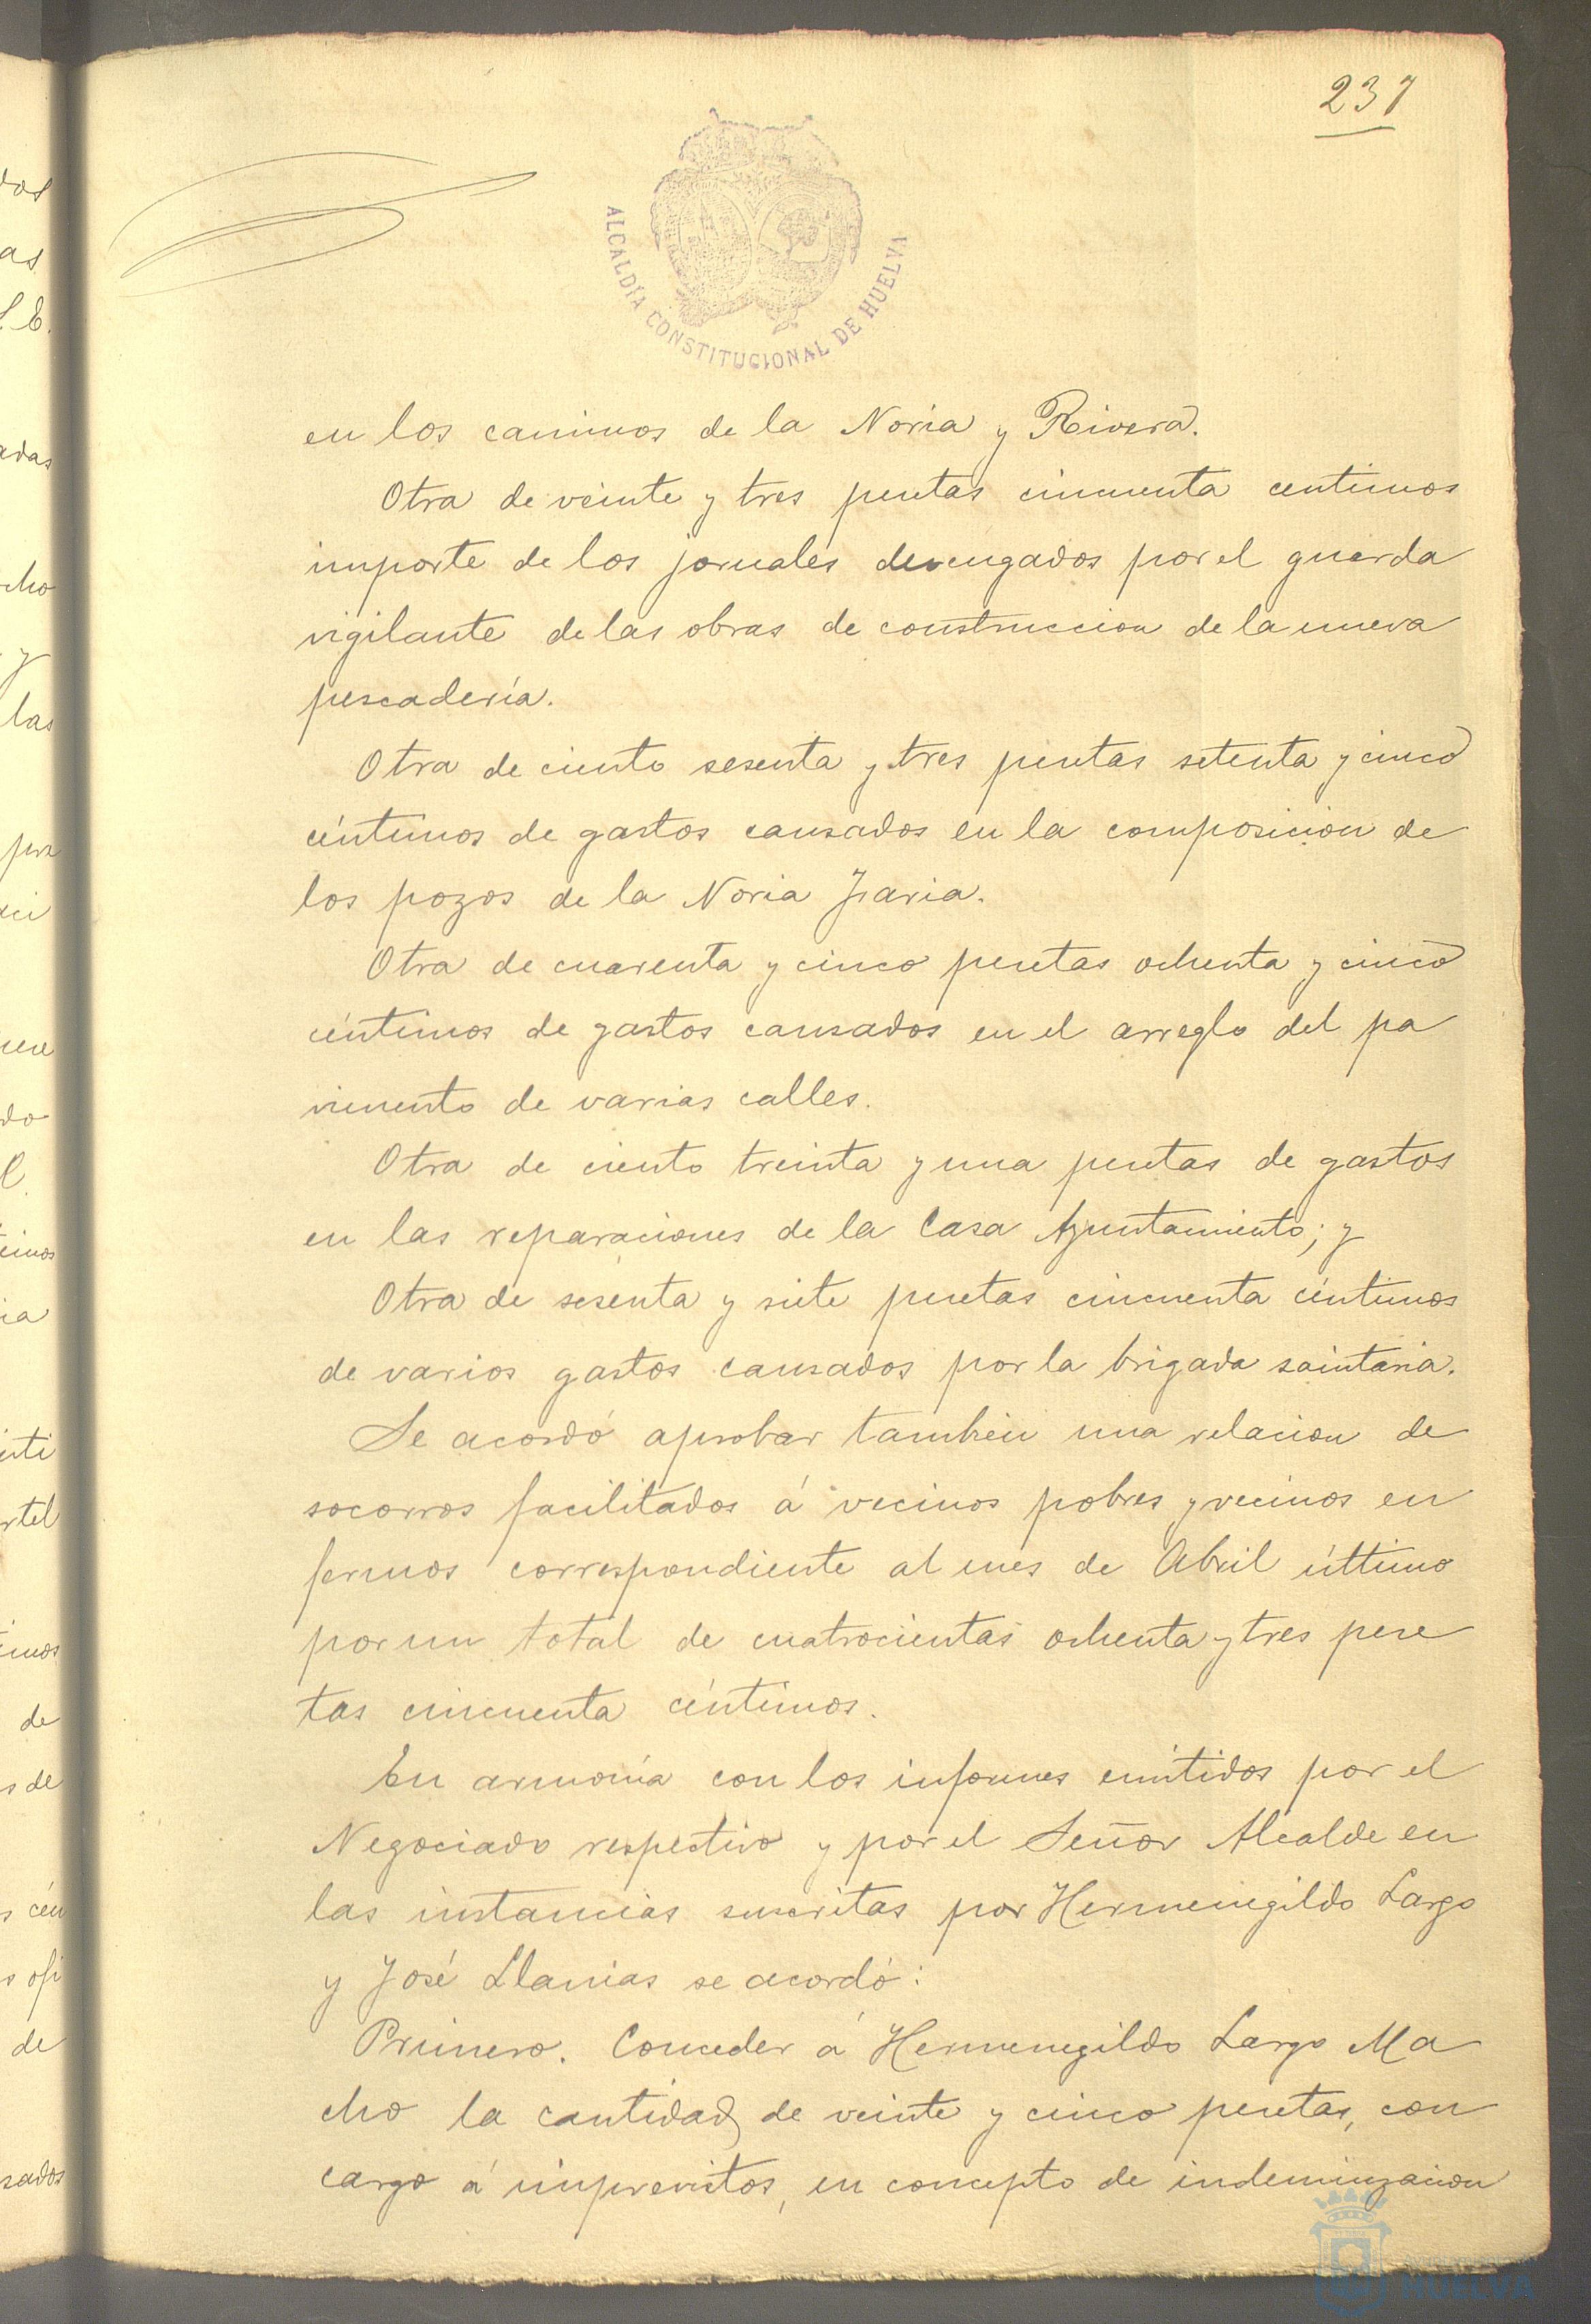 237
ALCALDÍA CONSTITUCIONAL DE HUELVA
en los caminos de la Noria y Rivera.
Otra de veinte y tres pesetas cincuenta centimos
importe de los jornales devengados por el guarda
vigilante de las obras de construccion de la nueva
pescadería.
Otra de ciento sesenta y tres pesetas setenta y cinco
céntimos de gastos causados en la composicion de
los pozos de la Noria
Otra de cuarenta y cinco pesetas ochenta y cinco
céntimos de gastos causados en el arreglo del pa
vimento de varias calles.
Otra de ciento treinta y una pesetas de gastos
en las reparaciones de la Casa Ayuntamiento; y
Otra de sesenta y siete pesetas cincuenta céntimos
de varios gastos causados por la brigada saintaria.
Se acordó aprobar también una relacion de
socorros facilitados á vecinos pobres y vecinos en
fermos correspondiente al mes de Abril último
por un total de cuatrocientas ochenta y tres pese
tas cincuenta céntimos.
En armonía con los informes emitidos por el
Negociado respectivo y por el Señor Alcalde en
las instancias suscritas por Hermenegildo Largo
y José Llanias se acordó:
Primero. Conceder á Hermenegildo Largo Ma
cho la cantidad de veinte y cinco pesetas, con
cargo á imprevistos, en concepto de indemnizacion
HUELVA